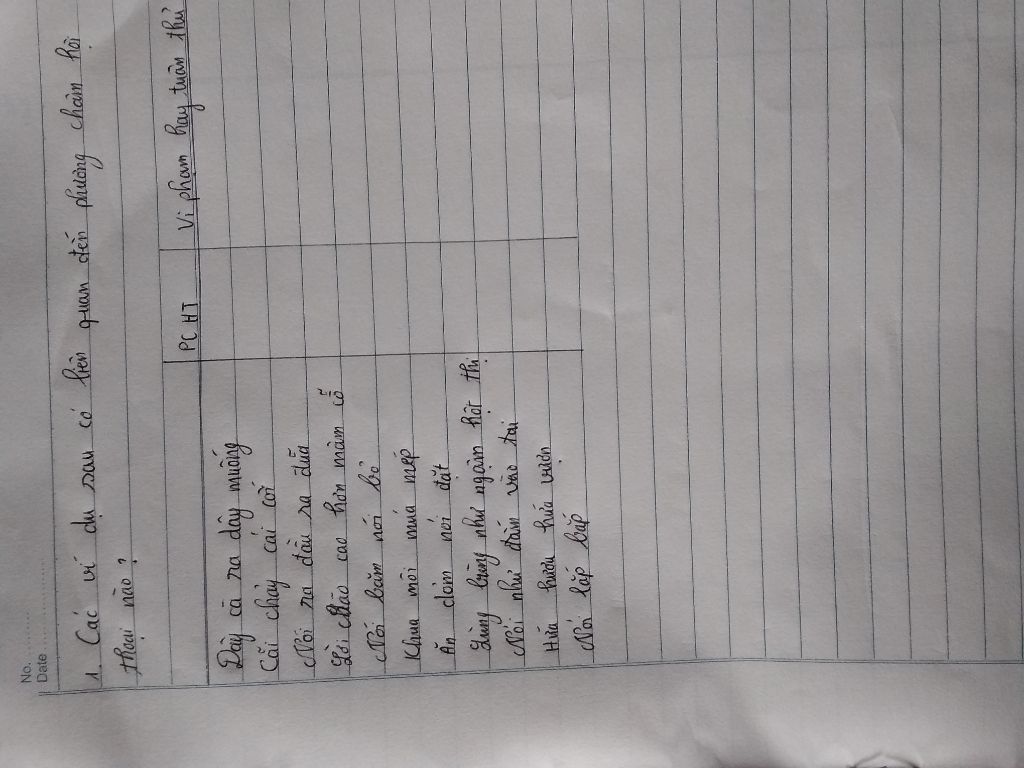 No. ............
Date ....................
1. Các ví dụ sau có liên quan đến phương châm hội
thoại nào ?
PCHT
Vi phạm hay tuân thủ
Dây cà ra dây muống
Cãi chày cãi cối
Nói ra đầu ra đũa
Lời chào cao hơn mâm cỗ
Nói băm nói bổ
Khua môi múa mép
Ăn đơm nói đặt
Lúng búng như ngậm hột thị
Nói như đấm vào tai
Hứa hươu hứa vượn
Nói lắp bắp